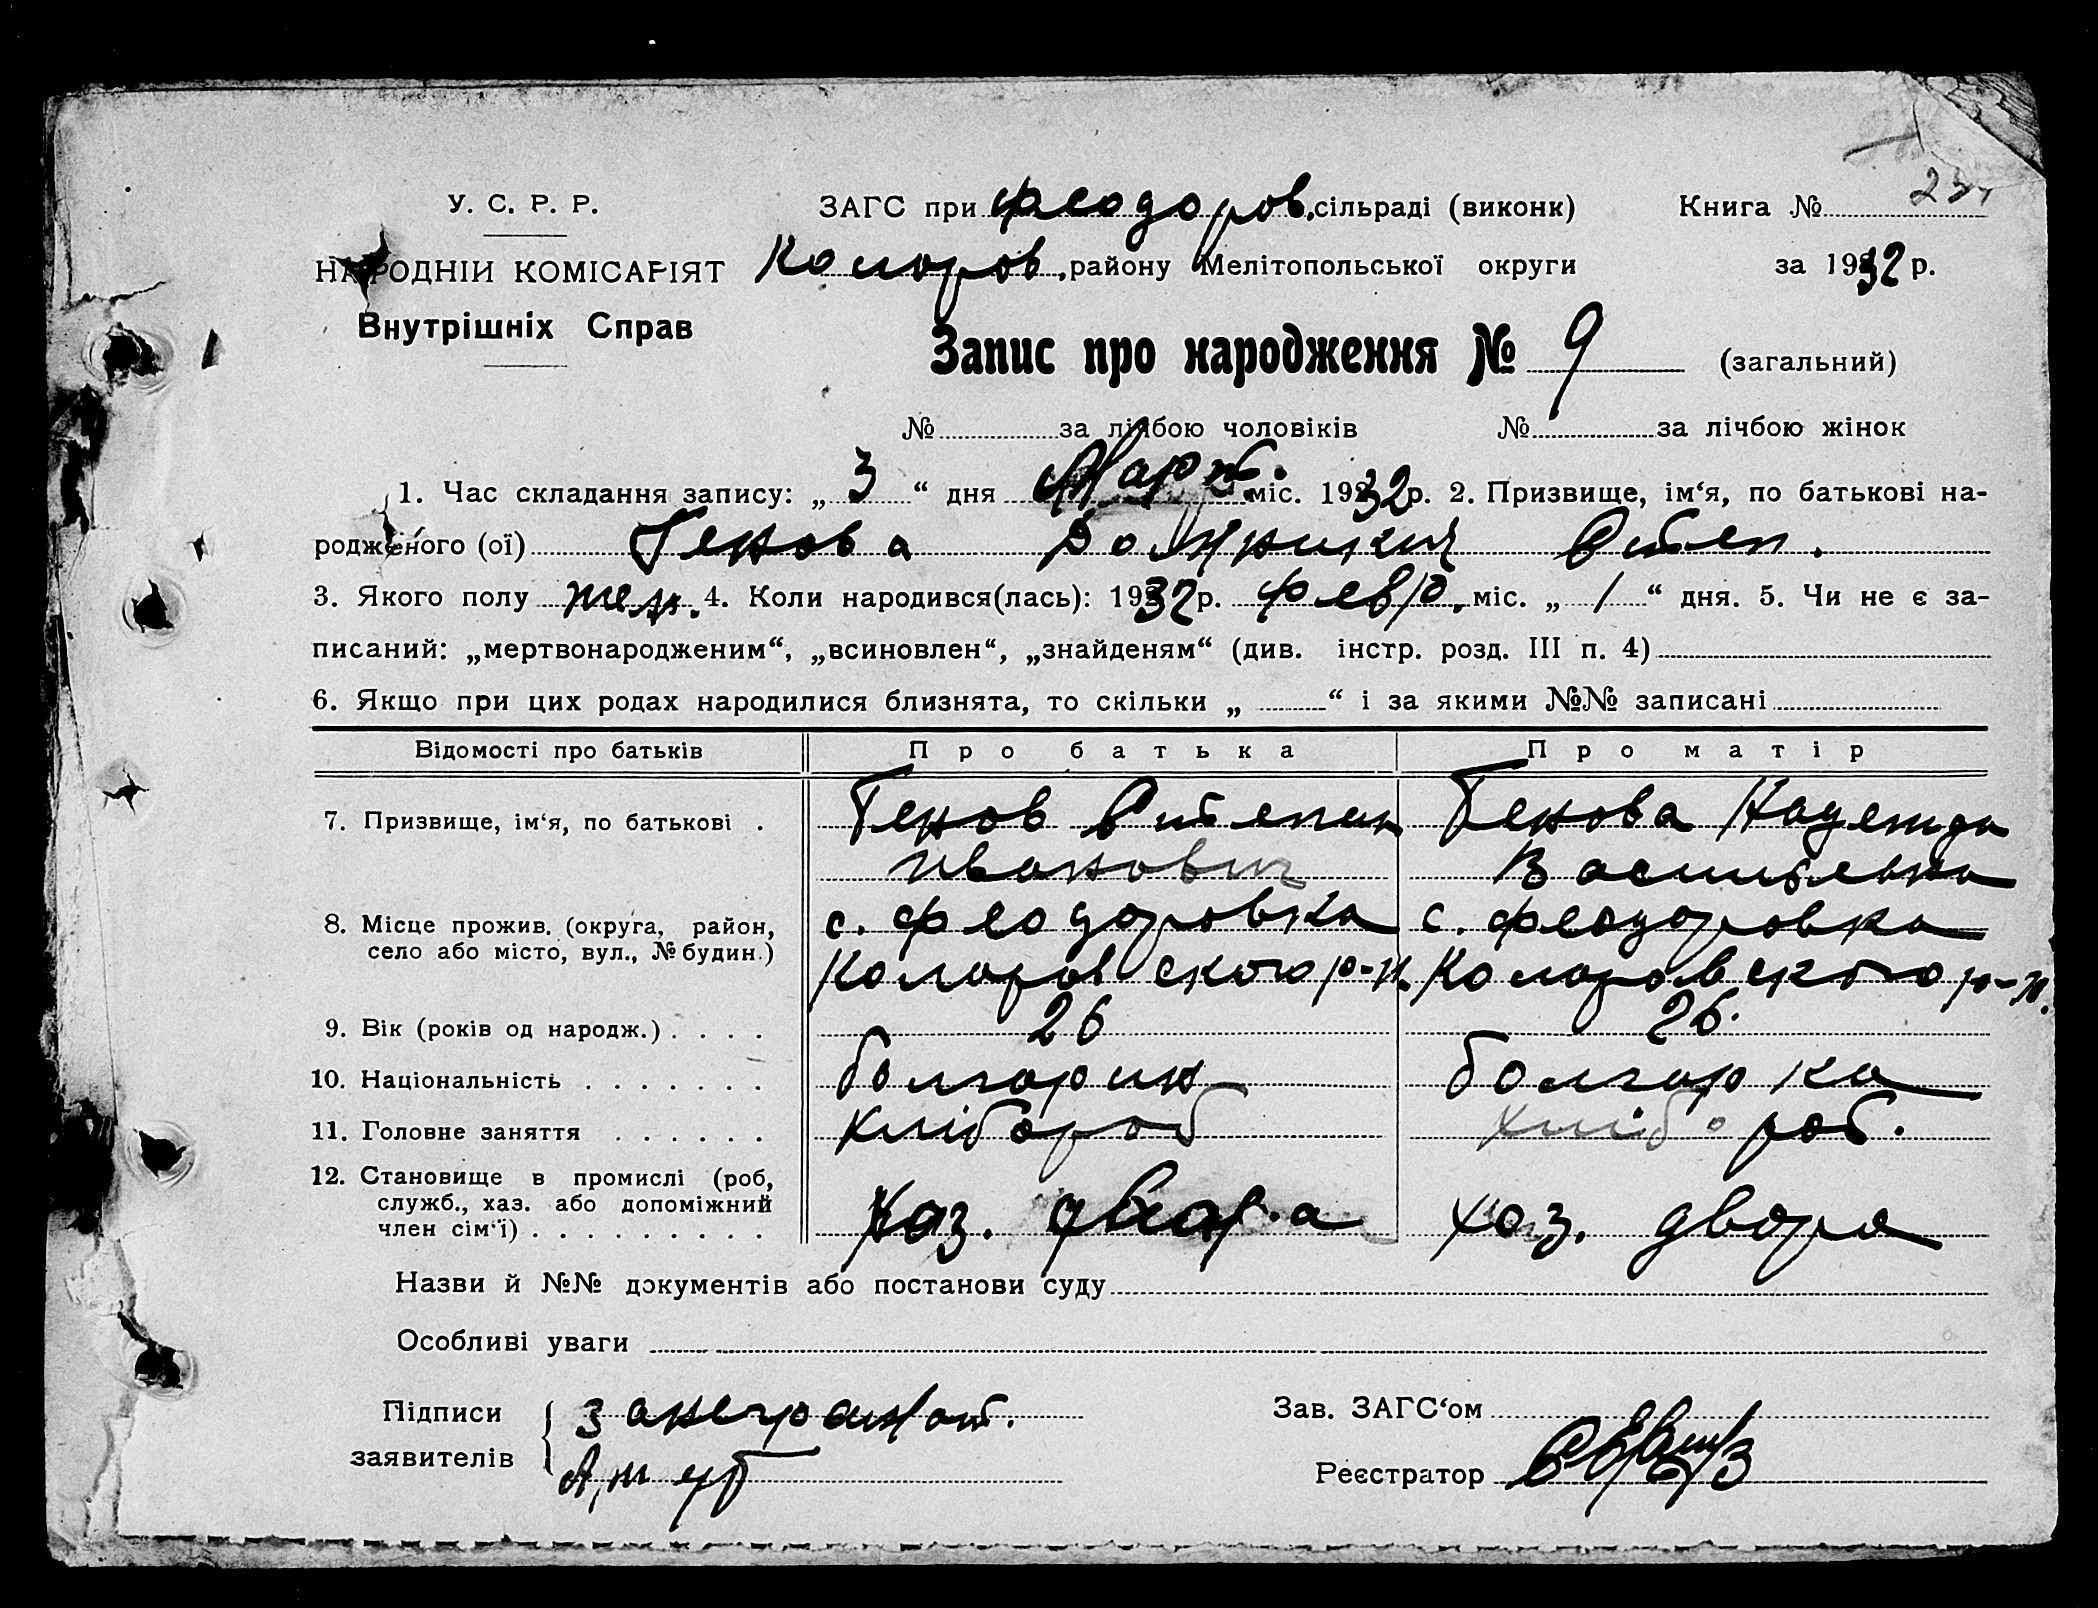 У. С. Р. Р. ЗАГС при Феодоров. сільраді (виконк) Книга №
НАРОДНІЙ КОМІСАРІЯТ Коларов. району Мелітопольської округи за 1932 р.
Внутрішніх Справ
Запис про народження № 9 (загальний)
№ за лічбою чоловіків № за лічбою жінок
1. Час складання запису: „ 3 “ дня Март. міс. 1932 р. 2. Призвище, ім‘я, по батькові на-
родженого (ої) Генова Степ.
3. Якого полу жен. 4. Коли народився(лась): 1932 р. февр. міс. „ 1 “ дня. 5. Чи не є за-
писаний: „мертвонародженим“, „всиновлен“, „знайденям“ (див. інстр. розд. III п. 4)
6. Якщо при цих родах народилися близнята, то скільки „ “ і за якими №№ записані
Відомості про батьків Про батька Про матір
7. Призвище, ім‘я, по батькові . Генов Степан Генова Надежда
Иванович
8. Місце прожив. (округа, район, с. Феодоровка с. Феодоровка
село або місто, вул., № будин.) Коларовского р-н. Коларовского р-н.
9. Вік (років од народж.) . . . . 26 26.
10. Національність . . . . . . . болгарин болгарка
11. Головне заняття . . . . . . хлібороб хлібороб.
12. Становище в промислі (роб,
служб., хаз. або допоміжний хаз. двора хаз. двора
член сім‘ї) . . . . . . . . .
Назви й №№ документів або постанови суду
Особливі уваги
Підписи Зав. ЗАГС‘ом
заявителів Реєстратор